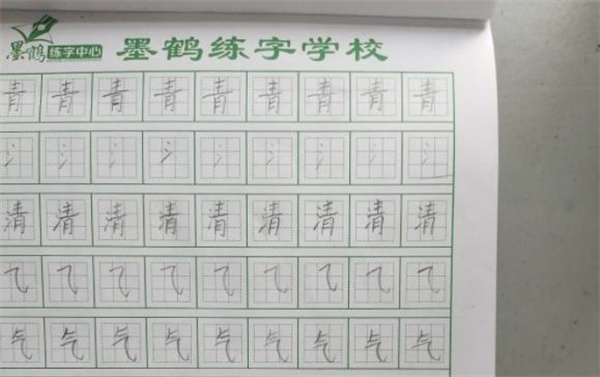 墨鹤 练字中心 墨鹤练字学校
青 青 青 青 青 青 青 青 青
氵 氵 氵 氵 氵 氵 氵 氵 氵
清 清 清 清 清 清 清 清 清
⺄ ⺄ ⺄ ⺄ ⺄ ⺄ ⺄ ⺄ ⺄
气 气 气 气 气 气 气 气 气